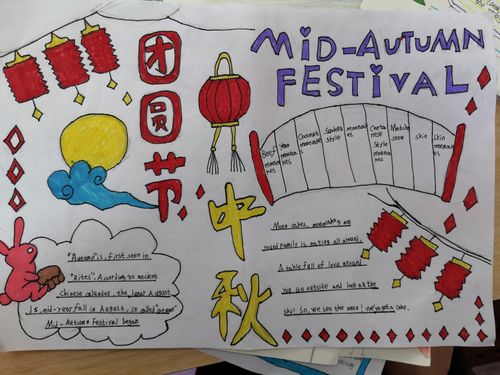 团圆节
MID-AUTUMN
FESTIVAL
中秋
Beef mooncakes
style
Cantonese Style mooncakes
Matcha snow
skin
Skin mooncakes
"Autumn" is, first seen in
"Rites". According to ancient
Chinese calendar, the lunar August
15, mid-year fall in August, so called
Mid-Autumn Festival began
Moon cakes, mooncakes
round family is eating all around,
A table full of love around
you go outside and look at the
sky! So, we see the moon! We've got a cake.